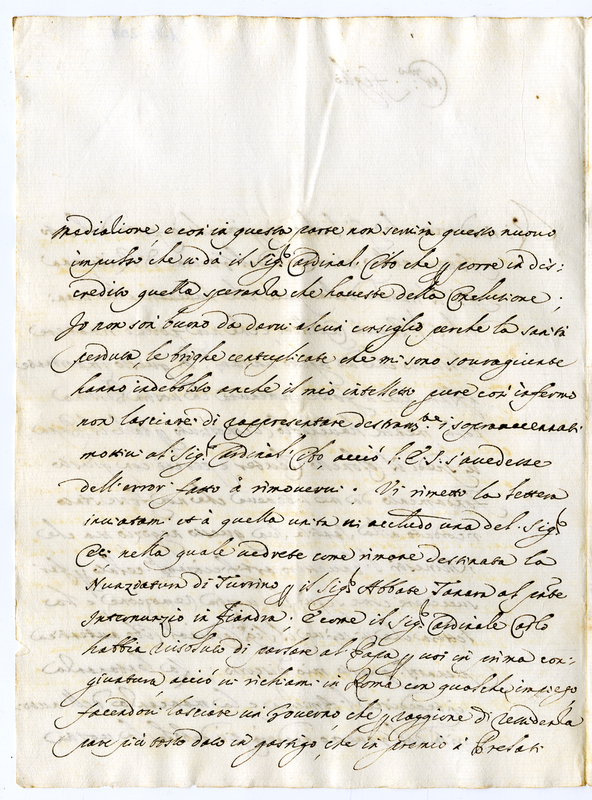 mediatione, e così in questa parte non servirà questo nuovo
impulso che vi dà il Sig.r Cardinal Cibo che p porre in dis-
credito quella speranza che haveste della conclusione;
Io non son buono da darvi alcun consiglio perche la sanità
perduta, le brighe centuplicate che mi sono sovragiunte
hanno indebolito anche il mio intelletto pure così infermo
non lasciarei di rappresentare destram.te i sopraaccennati
motivi al Sig.r Cardinal Cibo, acciò S. E. s'avedesse
dell'error fatto à rimovervi. Vi rimetto la lettera
inviatami et à quella unita vi accludo una del Sig.r
nella quale vedrete come rimane destinata la
Nunziatura di Turrino p il Sig.r Abbate Tanara al pnte
Internunzio in Fiandra; E come il Sig.r Cardinale Carlo
habbia risoluto di parlare al Papa p voi in prima con-
giuntura acciò vi richiami in Roma con qualche impiego
facendovi lasciare un Governo che p raggione di residenza
pare più tosto dato in gastigo, che in premio à Prelati